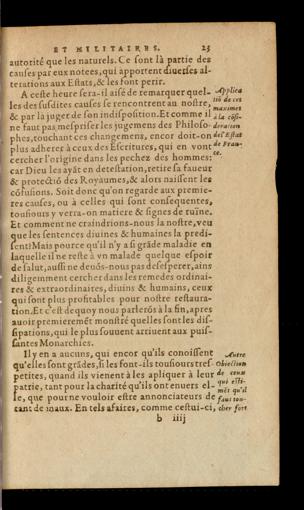 ET MILITAIRES. 23
autorité que les naturels. Ce sont là partie des
causes par eux notees, qui apportent diuerses al-
terations aux Estats, & les font perir.
A ceste heure sera-il aisé de remarquer quel-
les des susdites causes se rencontrent au nostre,
& par là juger de son indisposition. Et comme il
ne faut pas mespriser les jugemens des Philoso-
phes, touchant ces changemens, encor doit-on
plus adherer à ceux des Escritures, qui en vont
cercher l'origine dans les pechez des hommes:
car Dieu les ayãt en detestation, retire sa faueur
& protectiõ des Royaumes, & alors naissent les
cõfusions. Soit donc qu'on regarde aux premie-
res causes, ou à celles qui sont consequentes,
tousiours y verra-on matiere & signes de ruïne.
Et comment ne craindrions-nous la nostre, veu
que les sentences diuines & humaines la predi-
sent? Mais pource qu'il n'y a si grãde maladie en
laquelle il ne reste à vn malade quelque espoir
de salut, aussi ne deuõs-nous pas desesperer, ains
diligemment cercher dans les remedes ordinai-
res & extraordinaires, diuins & humains, ceux
qui sont plus profitables pour nostre restaura-
tion. Et c'est dequoy nous parlerõs à la fin, apres
auoir premieremẽt monstré quelles sont les dis-
sipations, qui le plus souuent arriuent aux puis-
santes Monarchies.
Il y en a aucuns, qui encor qu'ils conoissent
qu'elles sont grãdes, si les font-ils tousiours tres-
petites, quand ils vienent à les apliquer à leur
patrie, tant pour la charité qu'ils ont enuers el-
le, que pour ne vouloir estre annonciateurs de
tant de maux. En tels afaires, comme cestui-ci,
b iiij
Applica
tiõ de ces
maximes
à la cõsi-
deration
de l'Estat
de Fran-
ce.
Autre
Obiection
de ceux
qui esti-
mẽt qu'il
faut tou-
cher fort